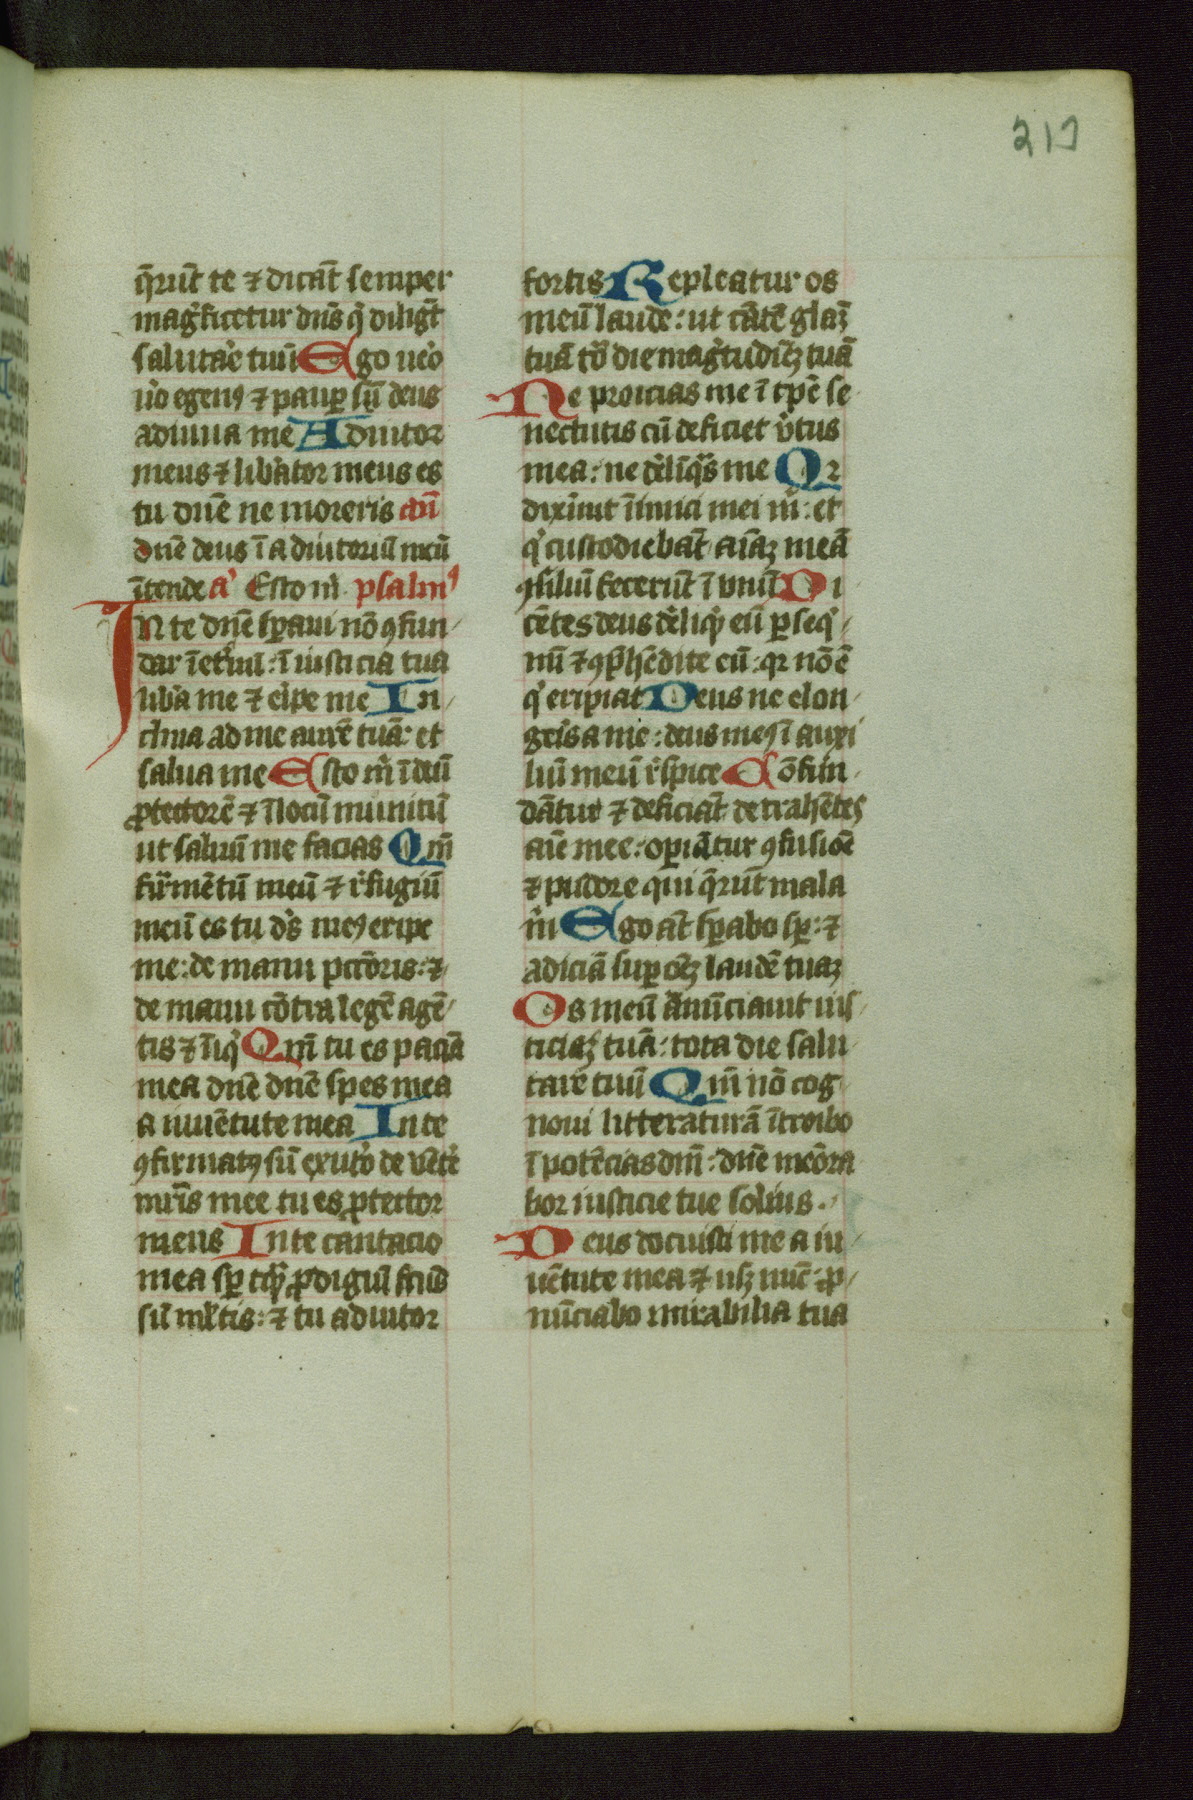 217
q̄rūt te ⁊ dicāt semper
mag̓ficetur dn̄s q̓ diligūt
salutar̓e tuū Ego uer̓o
ūo egenꝰ ⁊ paup̲ sū deus
adiuua me Adiutor
meus ⁊ lib̓ator meus es
tu dn̄e ne moreris an̄
dn̄e deus ī adiutoriū meū
ītende a̓ Esto m̓ psalmꝰ
In te dn̄e sp̲aui nō ꝯfun
dar īet̓nū: ī iusticia tua
lib̓a me ⁊ er̓ipe me In
clina ad me aurē tuā: et
salua me Esto m̓ ī deū
ꝓtectorē ⁊ ī locū munitū
ut saluū me facias Qm̄
firmētū meū ⁊ r̓fugiū
meū es tu dꝰs meꝰ eripe
me: de manu pctōris: ⁊
de manu cōtra legē agē
tis ⁊ īiq̓ Qm̄ tu es paciā
mea dn̄e dn̄e spes mea
a iuuētute mea In te
ꝯfirmatꝰ sū ex ut̓o de vēt̓e
mr̄is mee tu es ꝓtector
meus In te cantacio
mea sp̲ tq̄ꝫ ꝓdigiū fc̄us
sū ml̓tis: ⁊ tu adiutor
fortis Repleatur os
meū laude: ut cātē gl̄aꝫ
tuā to̓ die mag̓tudīeꝫ tuā
Ne proicias me ī tp̄e se
nectutis cū deficiet v̓tus
mea: ne d̓elīq̓s me Qr
dixer̓ūt īimici mei m̓: et
q̓ custodiebāt aīaꝫ meā
ꝯsiliū fecerūt ī vnū Di
cētes deus d̓eliq̓ eū p̲seq̓
mī ⁊ ꝯp̓hēdite eū: qr nō ē
q̓ eripiat Deus ne elon
ger̓is a me: deus meꝰ ī auxi
liū meū r̓spice Cōfun
dātur ⁊ deficiāt detrahētes
aīe mee: op̲iātur ꝯfusiōe
⁊ pudore qui q̄rūt mala
m̓ Ego āt sp̲abo sp̲: ⁊
adiciā sup̲ oēꝫ laudē tuaꝫ
Os meū ānūciauit ius
ticiaꝫ tuā: tota die salu
tar̓e tuū Qm̄ nō cog
noui litteraturā ītroibo
ī potēcias dn̄i: dn̄e memōra
bor iusticie tue solius.
Deus docuisti me a iu
uētute mea ⁊ usqꝫ nūc: ꝓ
nūciabo mirabilia tua